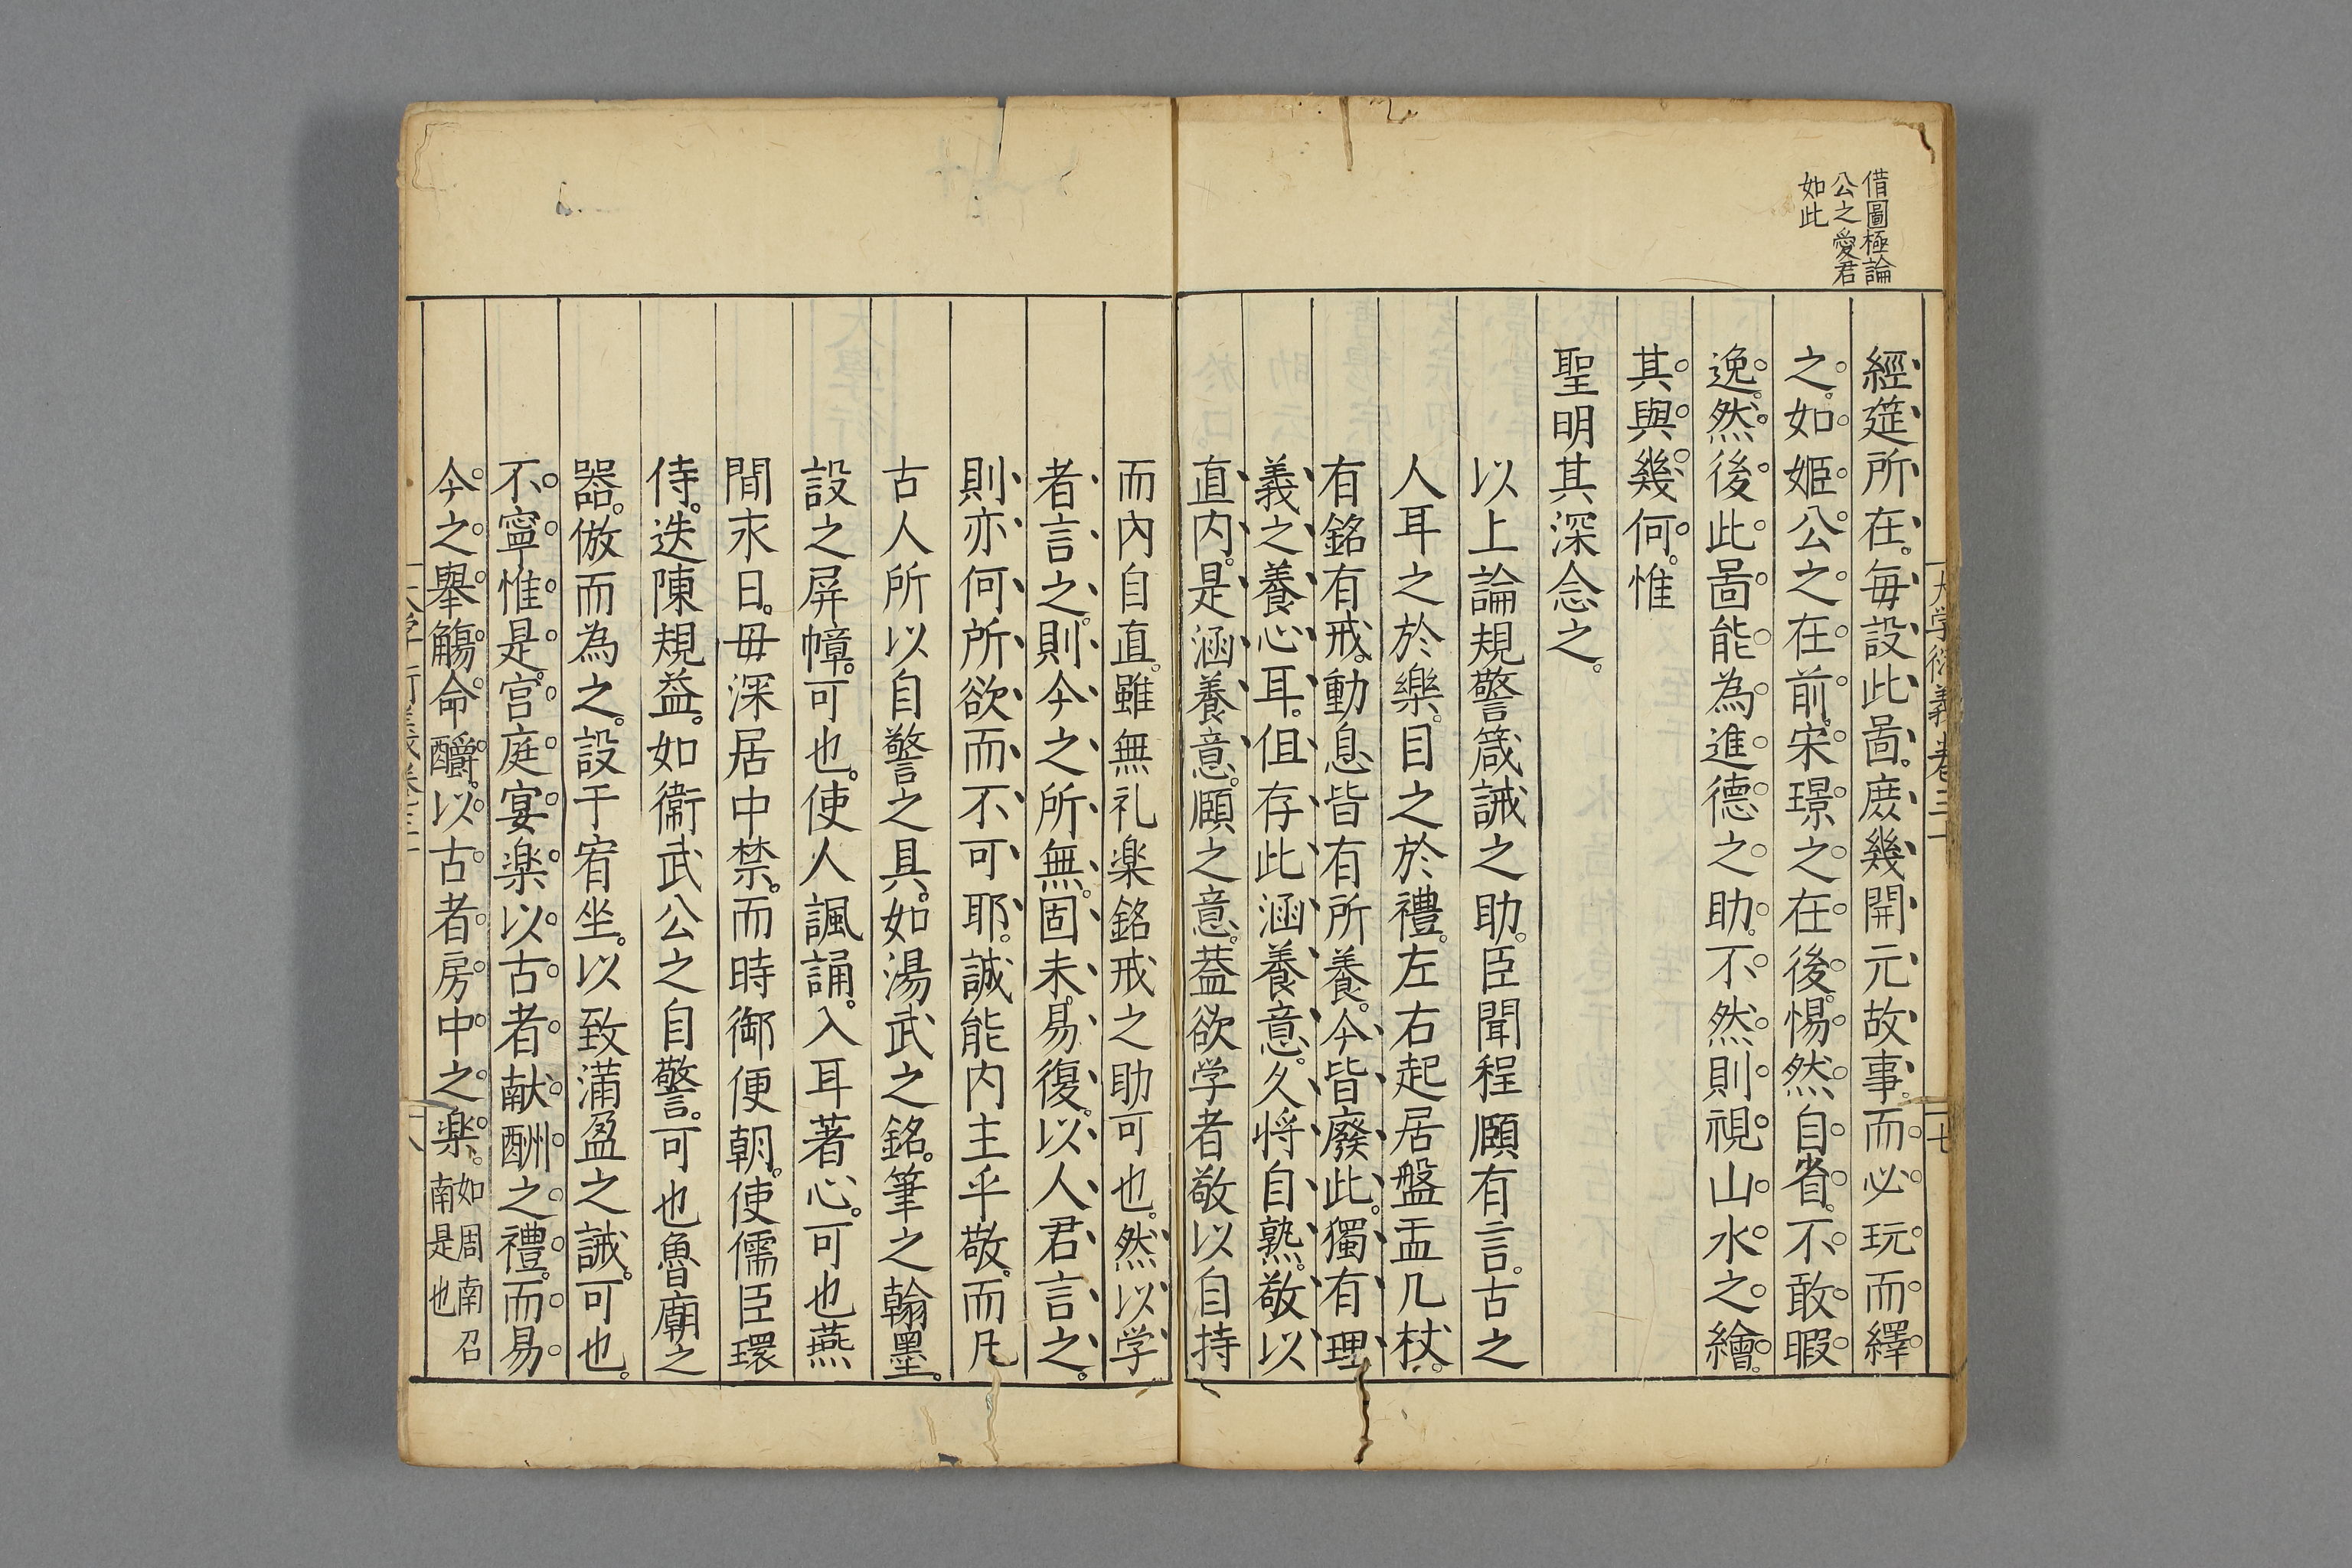 借圖極論
公之愛君
如此
大学衍義卷三十
十七
經筵所在。每設此啚。庻幾開元故事。而必玩而繹
之。如姬公之在前。宋璟之在後。惕然自省。不敢暇
逸。然後此啚能為進德之助。不然則視山水之繪。
其與幾何。惟
聖明其深念之。
以上論規警箴誡之助。臣聞程頤有言。古之
人耳之於樂。目之於禮。左右起居盤盂几杖。
有銘有戒。動息皆有所養。今皆廢此。獨有理
義之養心耳。但存此涵養意。久将自熟。敬以
直内。是涵養意。頤之意。葢欲学者敬以自持
而内自直。雖無礼楽銘戒之助可也。然以学
者言之。則今之所無。固未易復。以人君言之。
則亦何所欲而不可耶。誠能内主乎敬。而凡
古人所以自警之具。如湯武之銘。筆之翰墨。
設之屏幛。可也。使人諷誦。入耳著心。可也燕
間求日。毋深居中禁。而時御便朝。使儒臣環
侍。迭陳規益。如衞武公之自警。可也魯廟之
器。倣而為之。設于宥坐。以致蒲盈之誡。可也。
不寧惟是。宫庭宴楽以古者献酬之禮。而易
今之舉觴命釂。以古者房中之楽。如周南召
南是也